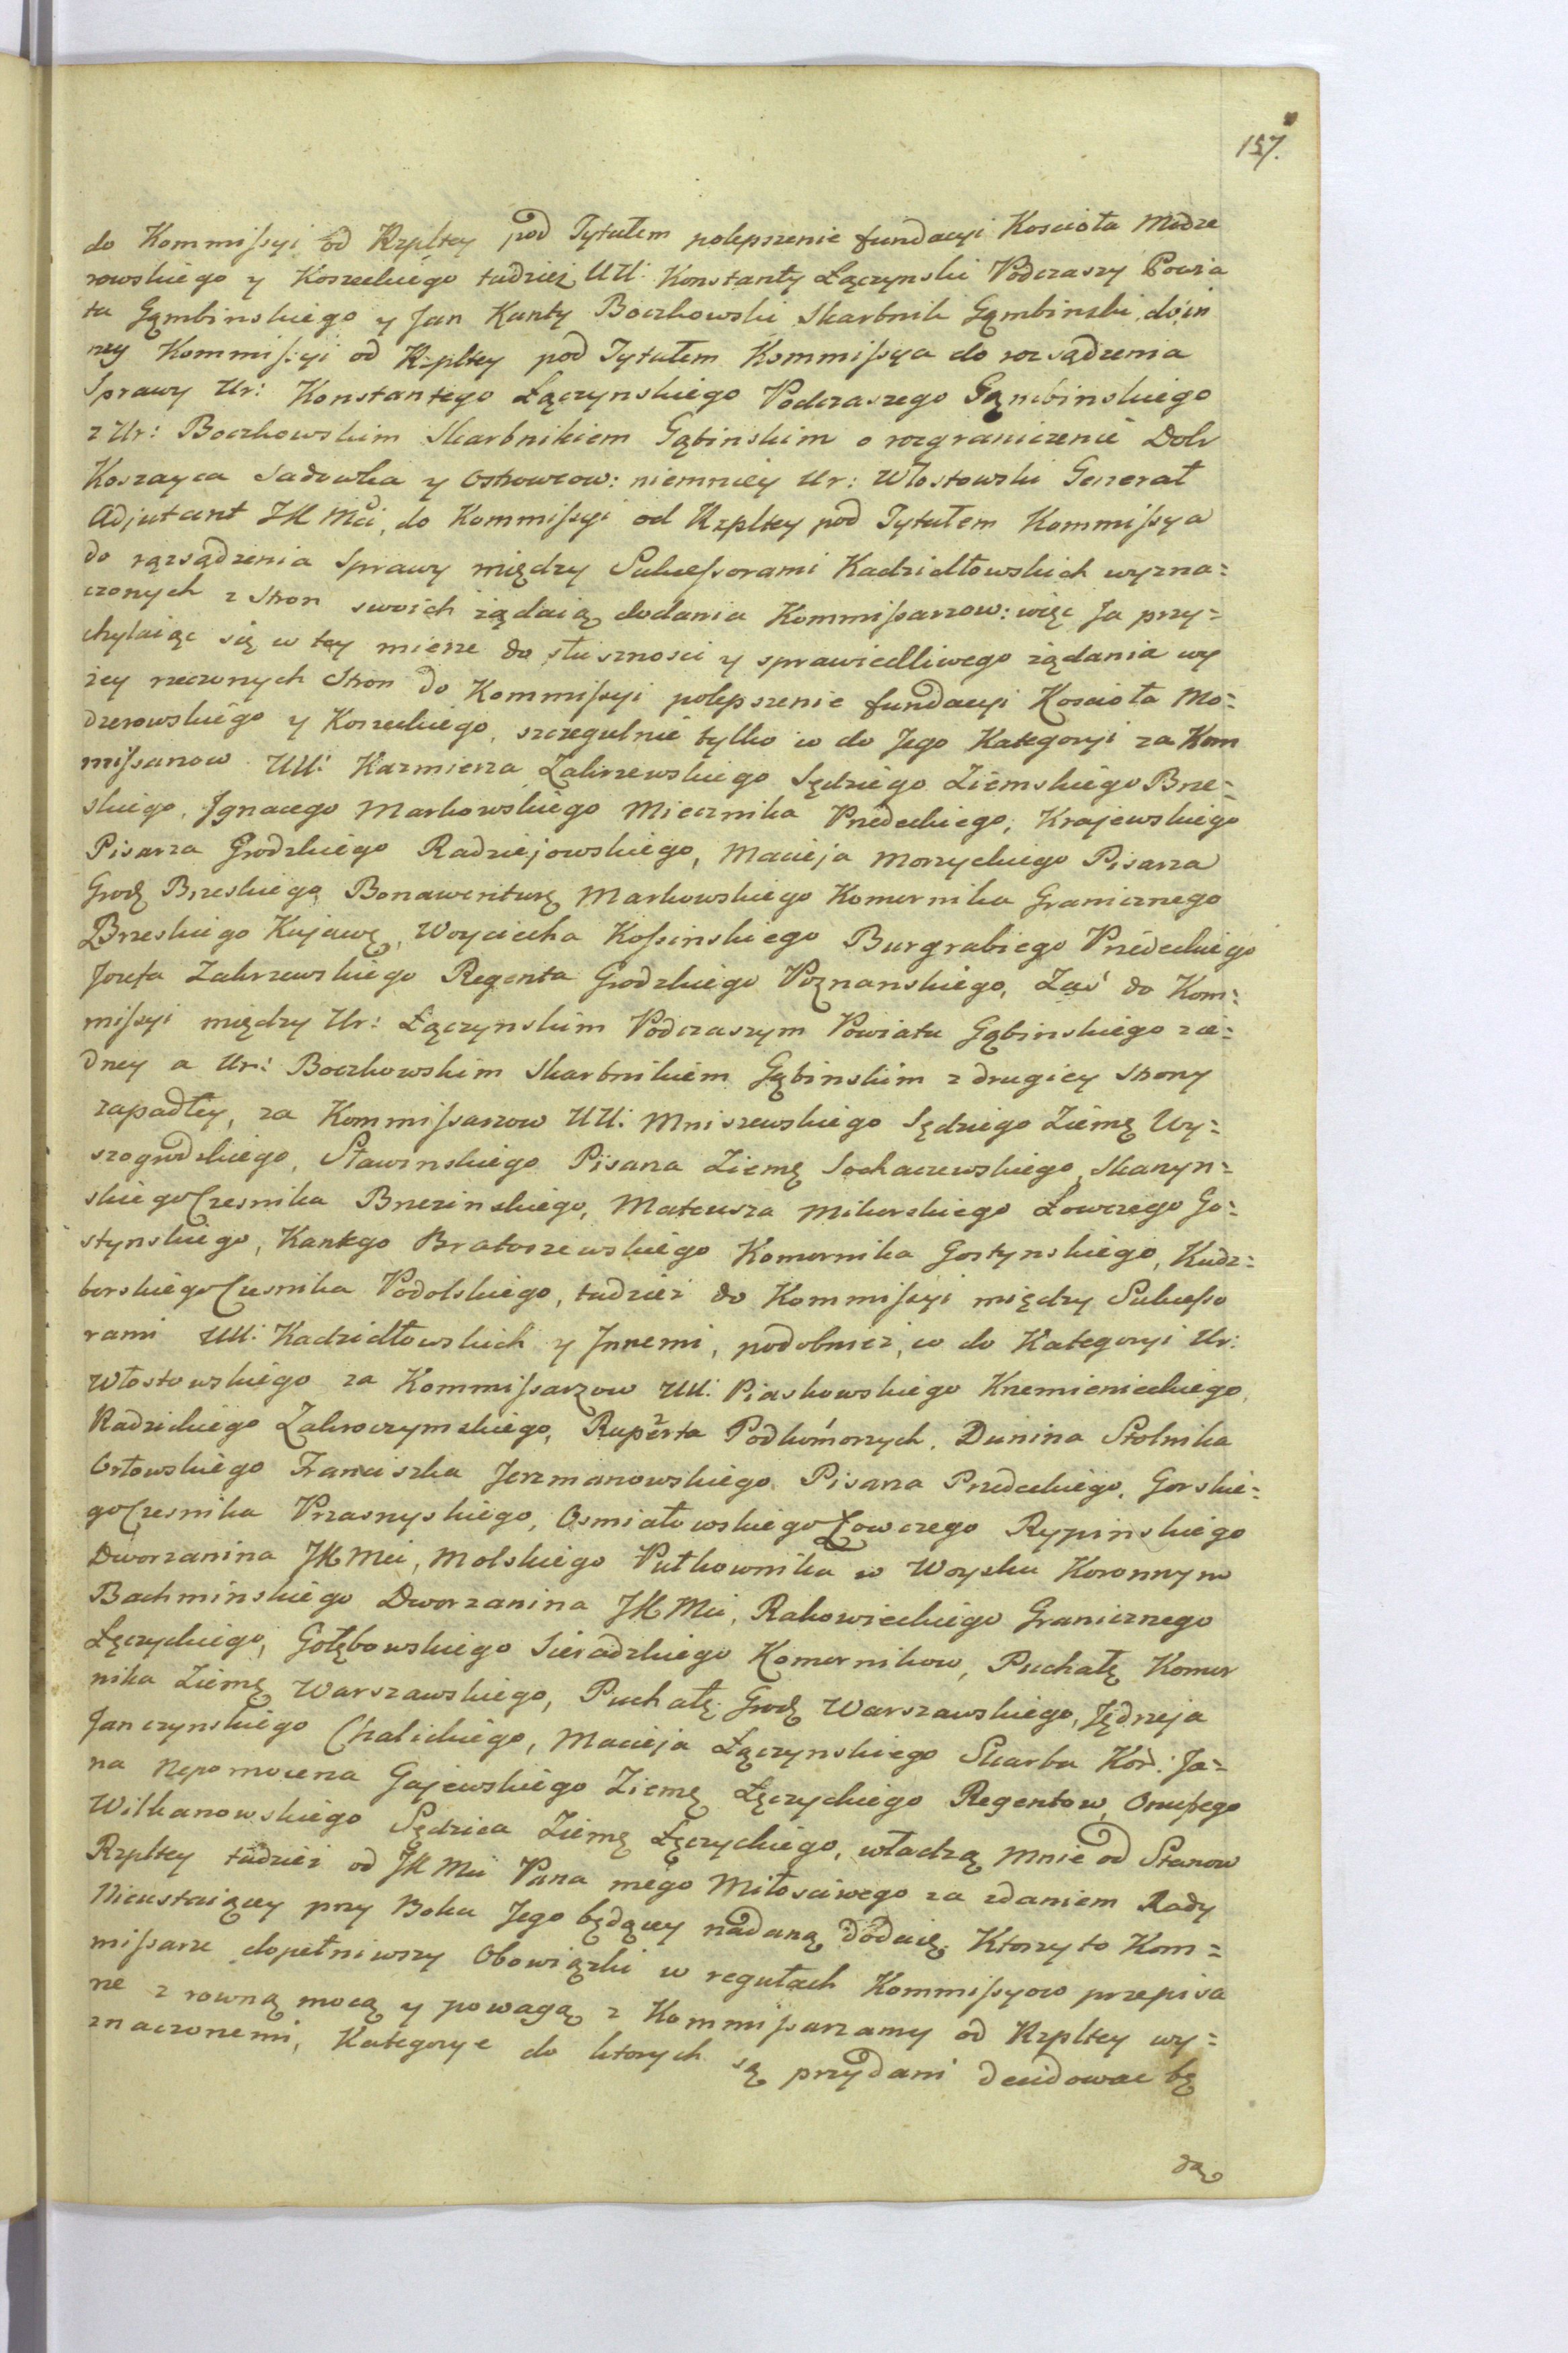 157.
do Kommissyi od Rzpltey pod Tytułem polepszenie fundacyi Kosciola Modze
rowskiego y Koszeckiego tudziez UU: Konstanty Łączynski Podczaszy Powia
tu Gąmbinskiego y Jan Kanty Boczkowski Skarbnik Gąmbinski, do in
ney Kommissyi od Rzpltey pod Tytułem Kommissya do rozsądzenia
Sprawy Ur: Konstantego Łączynskiego Podczaszego Gąmbinskiego
z Ur: Boczkowskim Skarbnikiem Gąbinskim o rozgraniczenie Dobr
Koszayca Sadowka y Ostrowcow: niemniey Ur: Włostowski Generał
Adjutant JK Mci, do Kommissyi od Rzpltey pod Tytułem Kommissya
do rązsądzenia Sprawy między Sukcessorami Kadzidłowskich wyzna=
czonych z Stron swoich żądaią dodania Kommissarzow: więc Ja przy=
chylaiąc się w tey mierze do słusznosci y sprawiedliwego ządania wy
zey rzeczonych Stron do Kommissyi polepszenie fundacyi Kosciola Mo=
dzerowskiego y Koszeckiego, szczegulnie tylko co do Jego Kategoryi za Kom
missarzow UU: Kazmierza Zakrzewskiego Sędziego Ziemskiego Brze=
skiego, Jgnacego Markowskiego Miecznika Przedeckiego, Krajewskiego
Pisarza Grodzkiego Radziejowskiego, Macieja Morzyckiego Pisarza
Grodz Brzeskiego Bonawenturę Markowskiego Komornika Granicznego
Brzeskiego Kujawę, Woyciecha Kossinskiego Burgrabiego Przedeckiego
Jozefa Zakrzewskiego Regenta Grodzkiego Poznanskiego, Zaś do Kom=
missyi między Ur: Łączynskim Podczaszym Powiatu Gąbinskiego z ie=
dney a Ur: Boczkowskim Skarbnikiem Gąbinskim z drugiey Strony
zapadłey, za Kommissarzow UU: Mniszewskiego Sędziego Ziemę Wy=
szogrodzkiego, Sławinskiego Pisarza Ziemę Sochaczewskiego, Skarzyn=
skiego Czesnika Brzezinskiego, Mateusza Mikorskiego Łowczego Go=
stynskiego, Kantego Bratoszewskiego Komornika Gostynskiego, Kudz=
borskiego Czesnika Podolskiego, tudziez do Kommissyi między Sukcesso
rami UU: Kadzidłowskich y Jnnemi, podobniez, co do Kategoryi Ur:
Włostowskiego za Kommissarzow UU: Piaskowskiego Krzemienieckiego,
Radzickiego Zakroczymskiego, Ruperta Podkomorzych, Dunina Stolnika
Orłowskiego Franciszka Jerzmanowskiego Pisarza Przedeckiego, Gorskie=
go Czesnika Przasnyskiego, Osmiałowskiego Łowczego Rypinskiego
Dworzanina JK Mci, Molskiego Pułkownika w Woysku Koronnym
Bachminskiego Dworzanina JK Mci, Rakowieckiego Granicznego
Łęczyckiego, Gołębowskiego Sieradzkiego Komornikow, Puchałę Komor
nika Ziemę Warszawskiego, Puchałę Grodz Warszawskiego, Jędrzeja
Janczynskiego Chalickiego, Macieja Łączynskiego Skarbu Kor: Ja=
na Nepomucena Gajewskiego Ziemę Łęczyckiego Regentow, Onufrego
Wilkanowskiego Sędzica Ziemę Łęczyckiego, władzą mnie od Stanow
Rzpltey tudziez od JK Mci Pana mego Miłosciwego za zdaniem Rady
Nieustaiącey przy Boku Jego będącey nadaną dodaię. Ktorzy to Kom=
missarze dopełniwszy Obowiązki w regułach Kommissyow przepisa
ne z rowną mocą y powagą z Kommissarzamy od Rzpltey wy=
znaczonemi, Kategorye do ktorych są przydani decidowac bę
dą